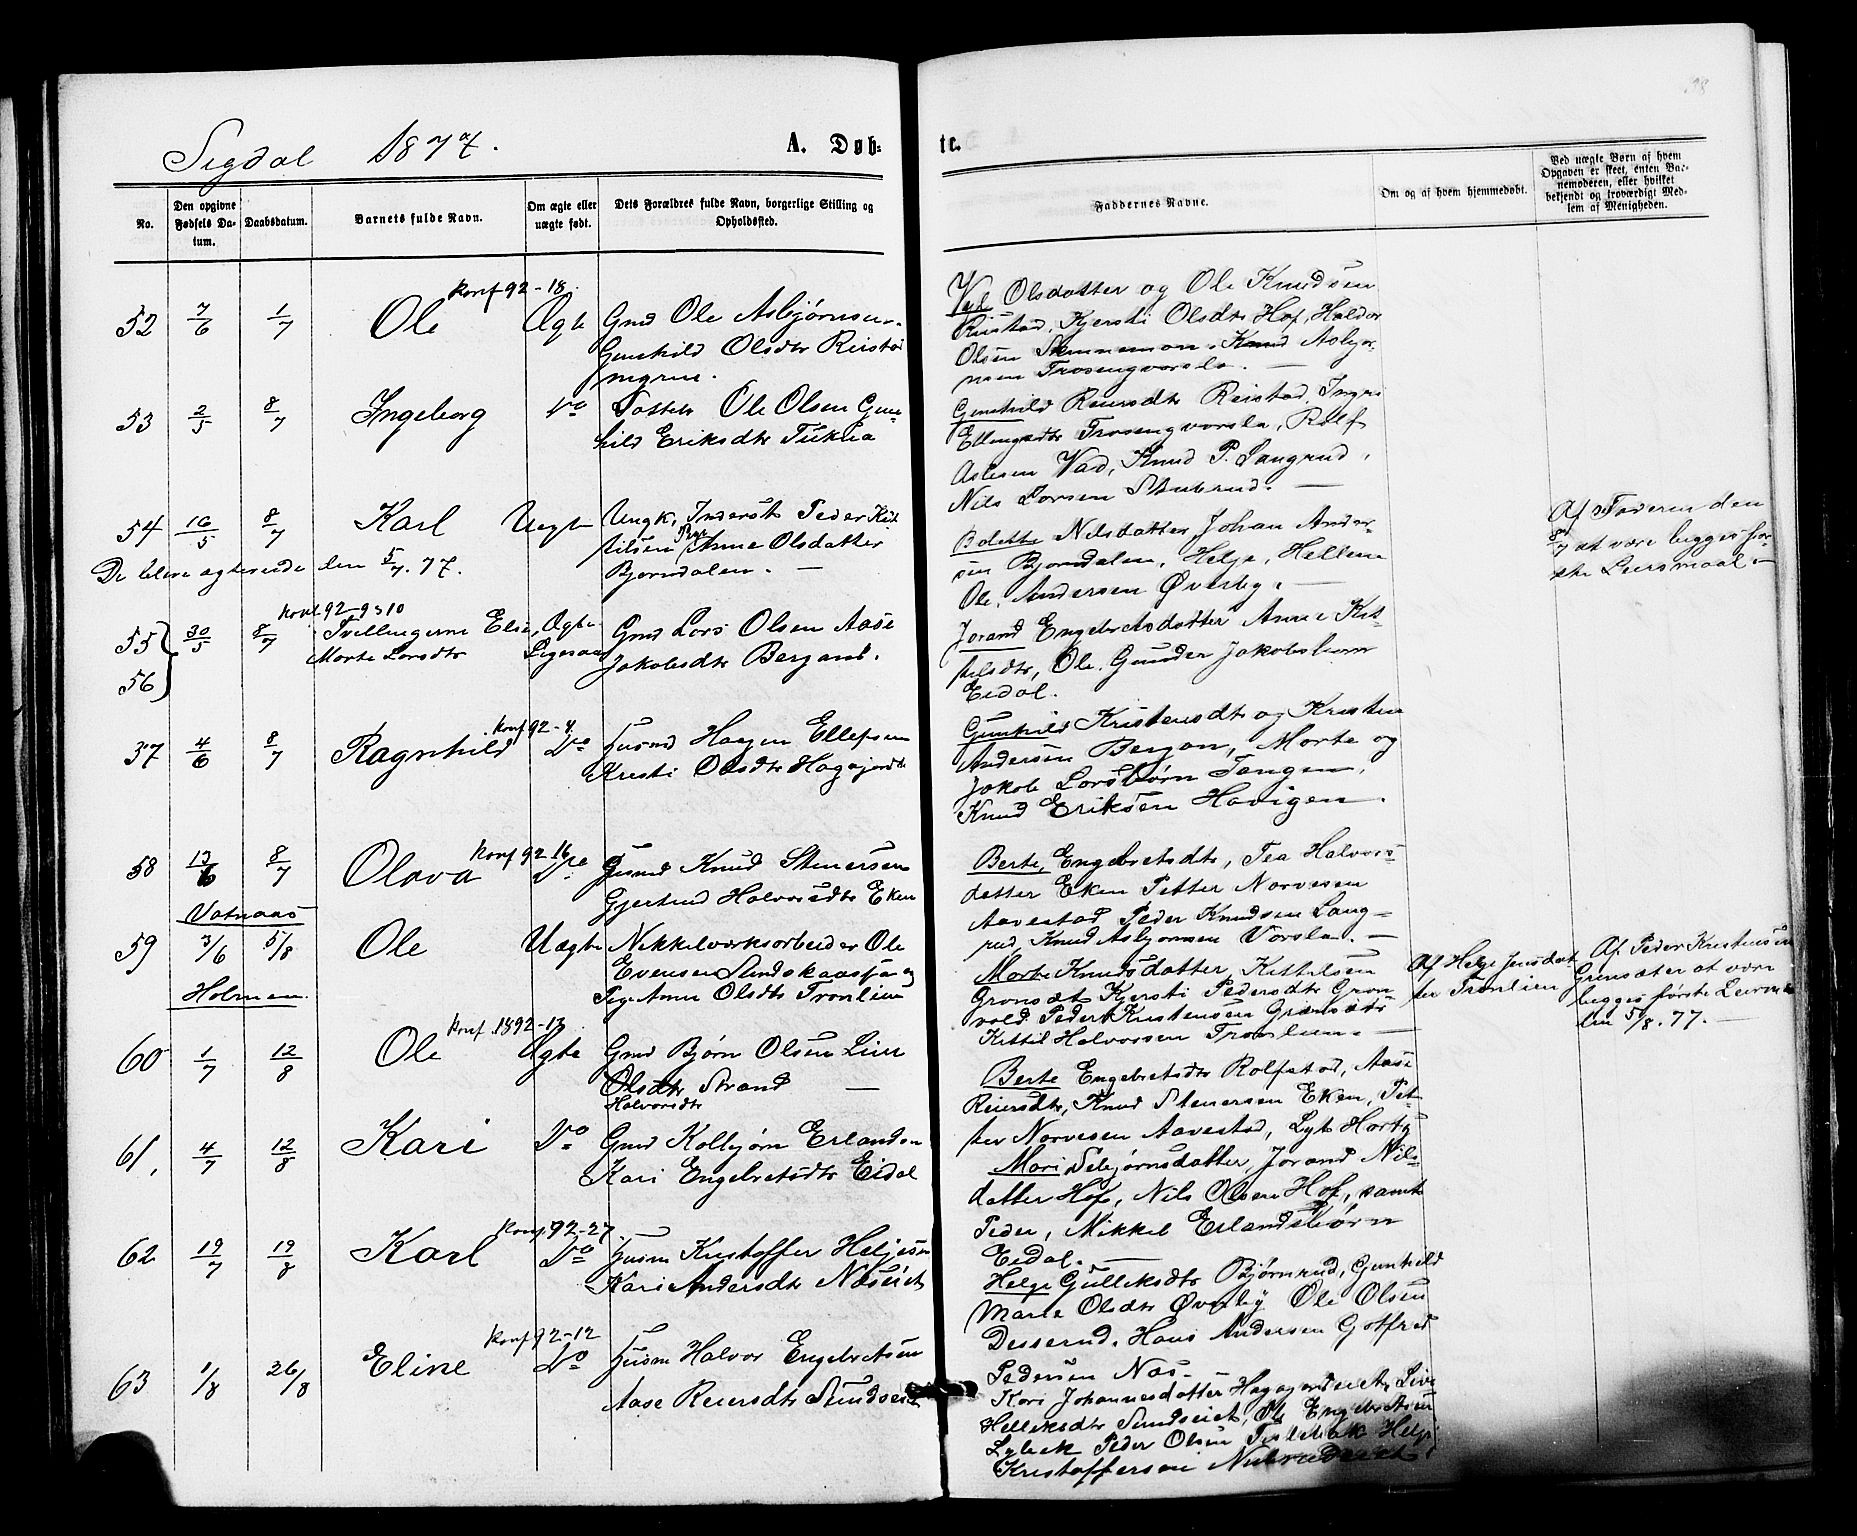 Sigdal 1877.
A. Døb-
te.
No.
Den opgivne Fødsels Datum.
Daabsdatum.
Barnets fulde Navn.
Om ægte eller uægte født.
Dets Forældres fulde Navn, borgerlige Stilling og Opholdssted.
Faddernes Navne.
Om og af hvem hjemmedøbt.
Ved uægte Børn af hvem
Opgaven er skeet, enten Bar-
nemoderen, eller hvilket
bekjendt og troværdigt Med-
lem af Menigheden.
Konf 92-18.
52 7/6 1/7 Ole Ægte Gmd Ole Asbjørnsen
Gunhild Olsdtr Reista
Olsdatter og Ole Knudsen
Reistad, Kjersti Olsdtr Hof, Haldor
Olsen Knud Asbjør-
nsen Trosengvorsla. —
53 2/5 8/7 Ingeborg Do Ole Olsen Gun-
hild Eriksdtr
Gunhild Reiersdtr Reistad, Ingri
Ellingsdtr Trosengvorsla, Rolf
Aslesen Vad, Knud P. Langrud,
Nils Larsen Stubrud. —
54 16/5 8/7 Karl Uægte Ungk. Inderst Peder Kit
tilsen Pige Anne Olsdatter
Bjørndalen. —
De bleve ægteviede den 5/7. 77.
Bolette Nilsdatter Johan Ander-
sen Bjørndalen, Helge, Hellene
Ole Andersen Øverby. —
Af Faderen den
8/7 at være begges før-
ste Leiermaal. —
Konf. 92-9 & 10
55 30/5 8/7 Tvillingerne Elise, Ægte
Marte Larsdtr
56
Gmd Lars Olsen Aase
Jakobsdtr Bergan
Jorand Engebretsdatter Anne Kit-
tilsdtr, Ole, Gunder Jakobsbørn
Eidal.
Konf 92-4
57 4/6 8/7 Ragnhild Do Husmd Haagen Ellefsen
Kristi Olsdtr
Gunhild Kristensdtr og Kristen
Andersen Bergan, Marte og
Jakob Larsbørn Tangen,
Knud Eriksen Havigen.
Konf 92 16
58 13/6 8/7 Olava Do Husmd Knud Stenersen
Gjertrud Halvorsdtr Eken
Berte Engebretsdtr, Tea Halvors-
datter Eken Petter Norvesen
Aavestad Peder Knudsen Lang-
rud, Knud Asbjørnsen Vorsla. —
Vatnaas
59 3/6 5/8 Ole Uægte Nikkelværksarbeider Ole
Evensen og
Pige Anne Olsdtr Tronlien
Holmen
Marte Knudsdatter, Kittilsen
Grønsæt Kjersti Pedersdtr Grøn
vold Peder Kristensen
Kittil Halvorsen Tronlien. —
Af Helge Jensdat
ter Tronlien
Af Peder Kristensen
at være
begges første
den 5/8. 77. —
Konf. 1892-13
60 1/7 12/8 Ole Ægte Gmd Bjørn Olsen Live
Olsdtr Strand —
Halvorsdtr
Berte Engebretsdtr Rolfstad, Aase
Reiersdtr, Knud Stenersen Eken, Pet-
ter Norvesen Aavestad,
61, 4/7 12/8 Kari Do Gmd Kolbjørn Erlandsen
Kari Engebretsdtr Eidal
Mari Sebjørnsdatter, Jorand Nils-
datter Hof, Nils Olsen Hof, samt
Peder, Mikkel Erlandsbørn
Eidal. —
Konf. 92-27.
62 19/7 19/8 Karl Do Husm Kristoffer Helgesen
Kari Andersdtr Næseiet
Helge Gulliksdtr Bjørnrud, Gunhild
Marie Olsdtr Øverby Ole Olsen
Desserud. Hans Andersen Gotfred
Pedersen Næs. —
Konf 92-12
63 1/8 26/8 Eline Do Husm Halvor Engebretsen
Aase Reiersdtr Sundseiet
Kari Johannesdatter Live
Helliksdtr Sundseiet, Ole Engebretsen
Lybeck Peder Olsen Helge
Kristoffersen